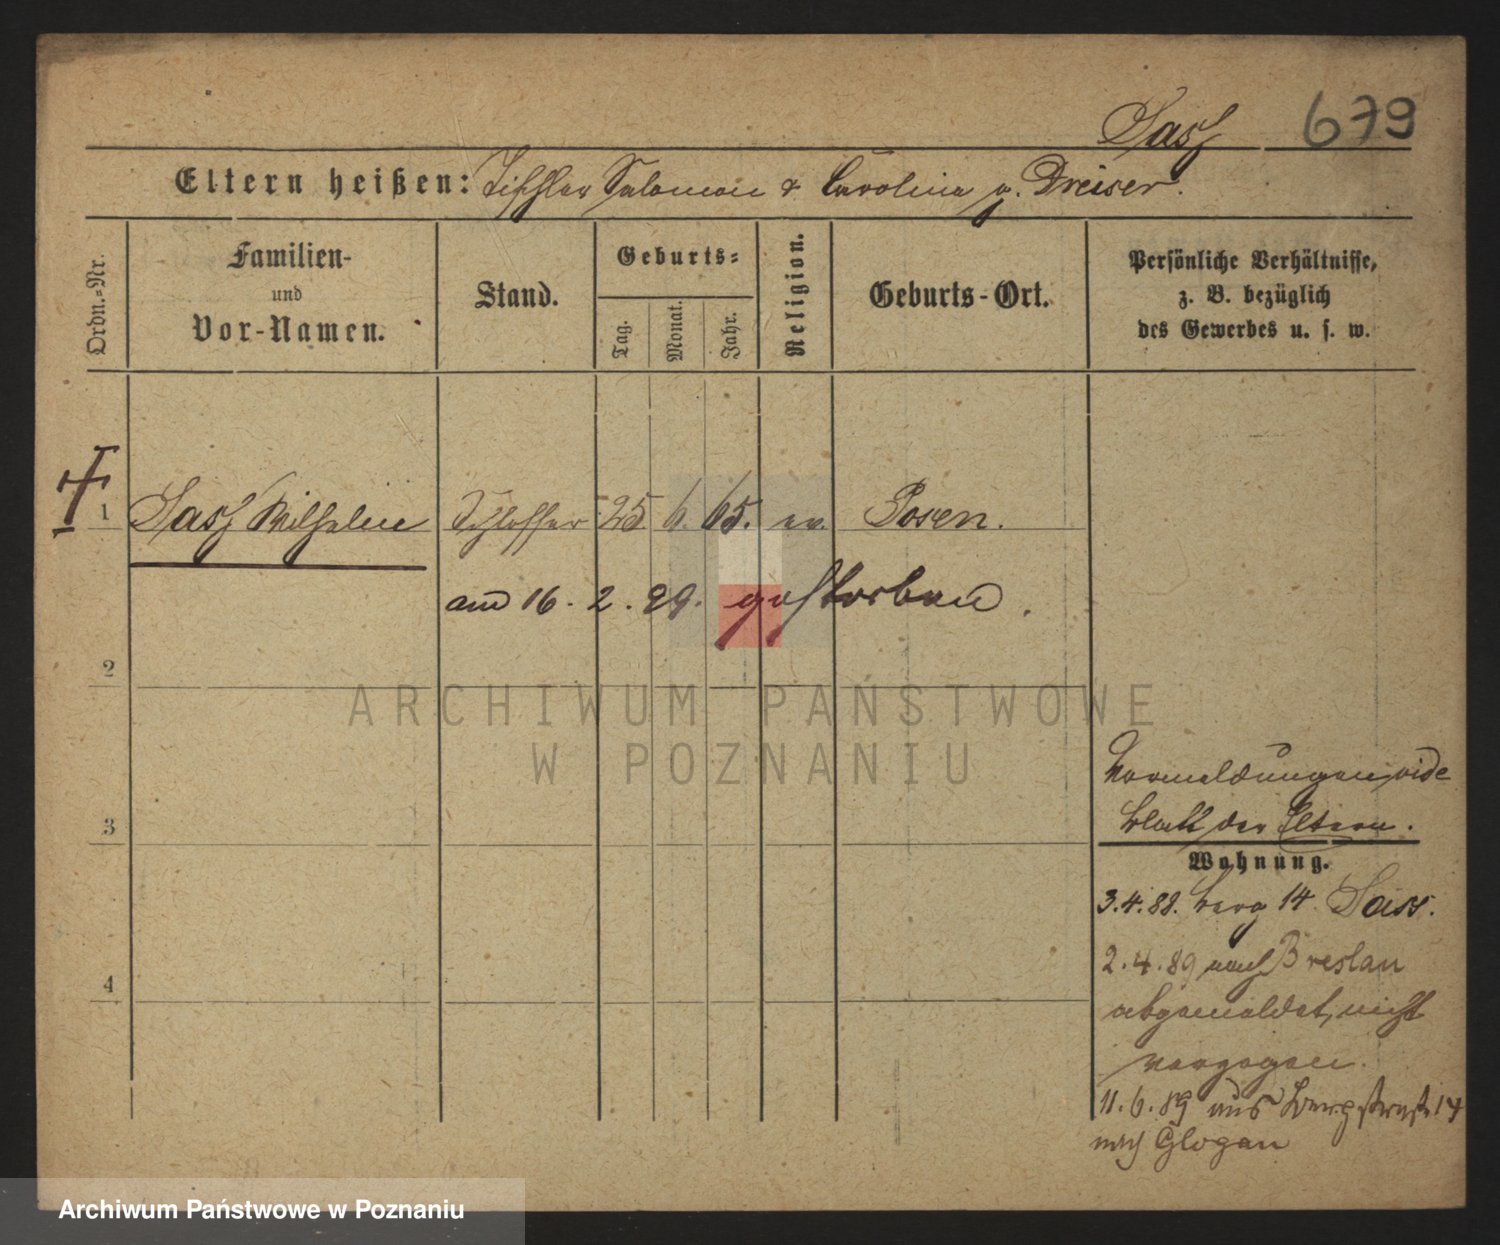 Sasß 679
Eltern heißen: Tischler Salomon & Caroline g. Dreiser.
Ordn.-Nr.
Familien-
und
Vor-Namen.
Stand.
Geburts-
Tag.
Monat.
Jahr.
Religion.
Geburts-Ort.
Persönliche Verhältnisse,
z. B. bezüglich
des Gewerbes u. s. w.
1 Sasß Wilhelm Schlosser 25 6. 65. ev. Posen.
am 16. 2. 89. gestorben.
2
ARCHIWUM PAŃSTWOWE
W POZNANIU
3
Vormeldungen, vide
Blatt der Eltern.
Wohnung.
3.4.88. Berg 14 Sass.
2.4.89 nach Breslau
4
abgemeldet, nicht
verzogen.
11.6.89 aus Bergstraße 14
nach Glogau
Archiwum Państwowe w Poznaniu